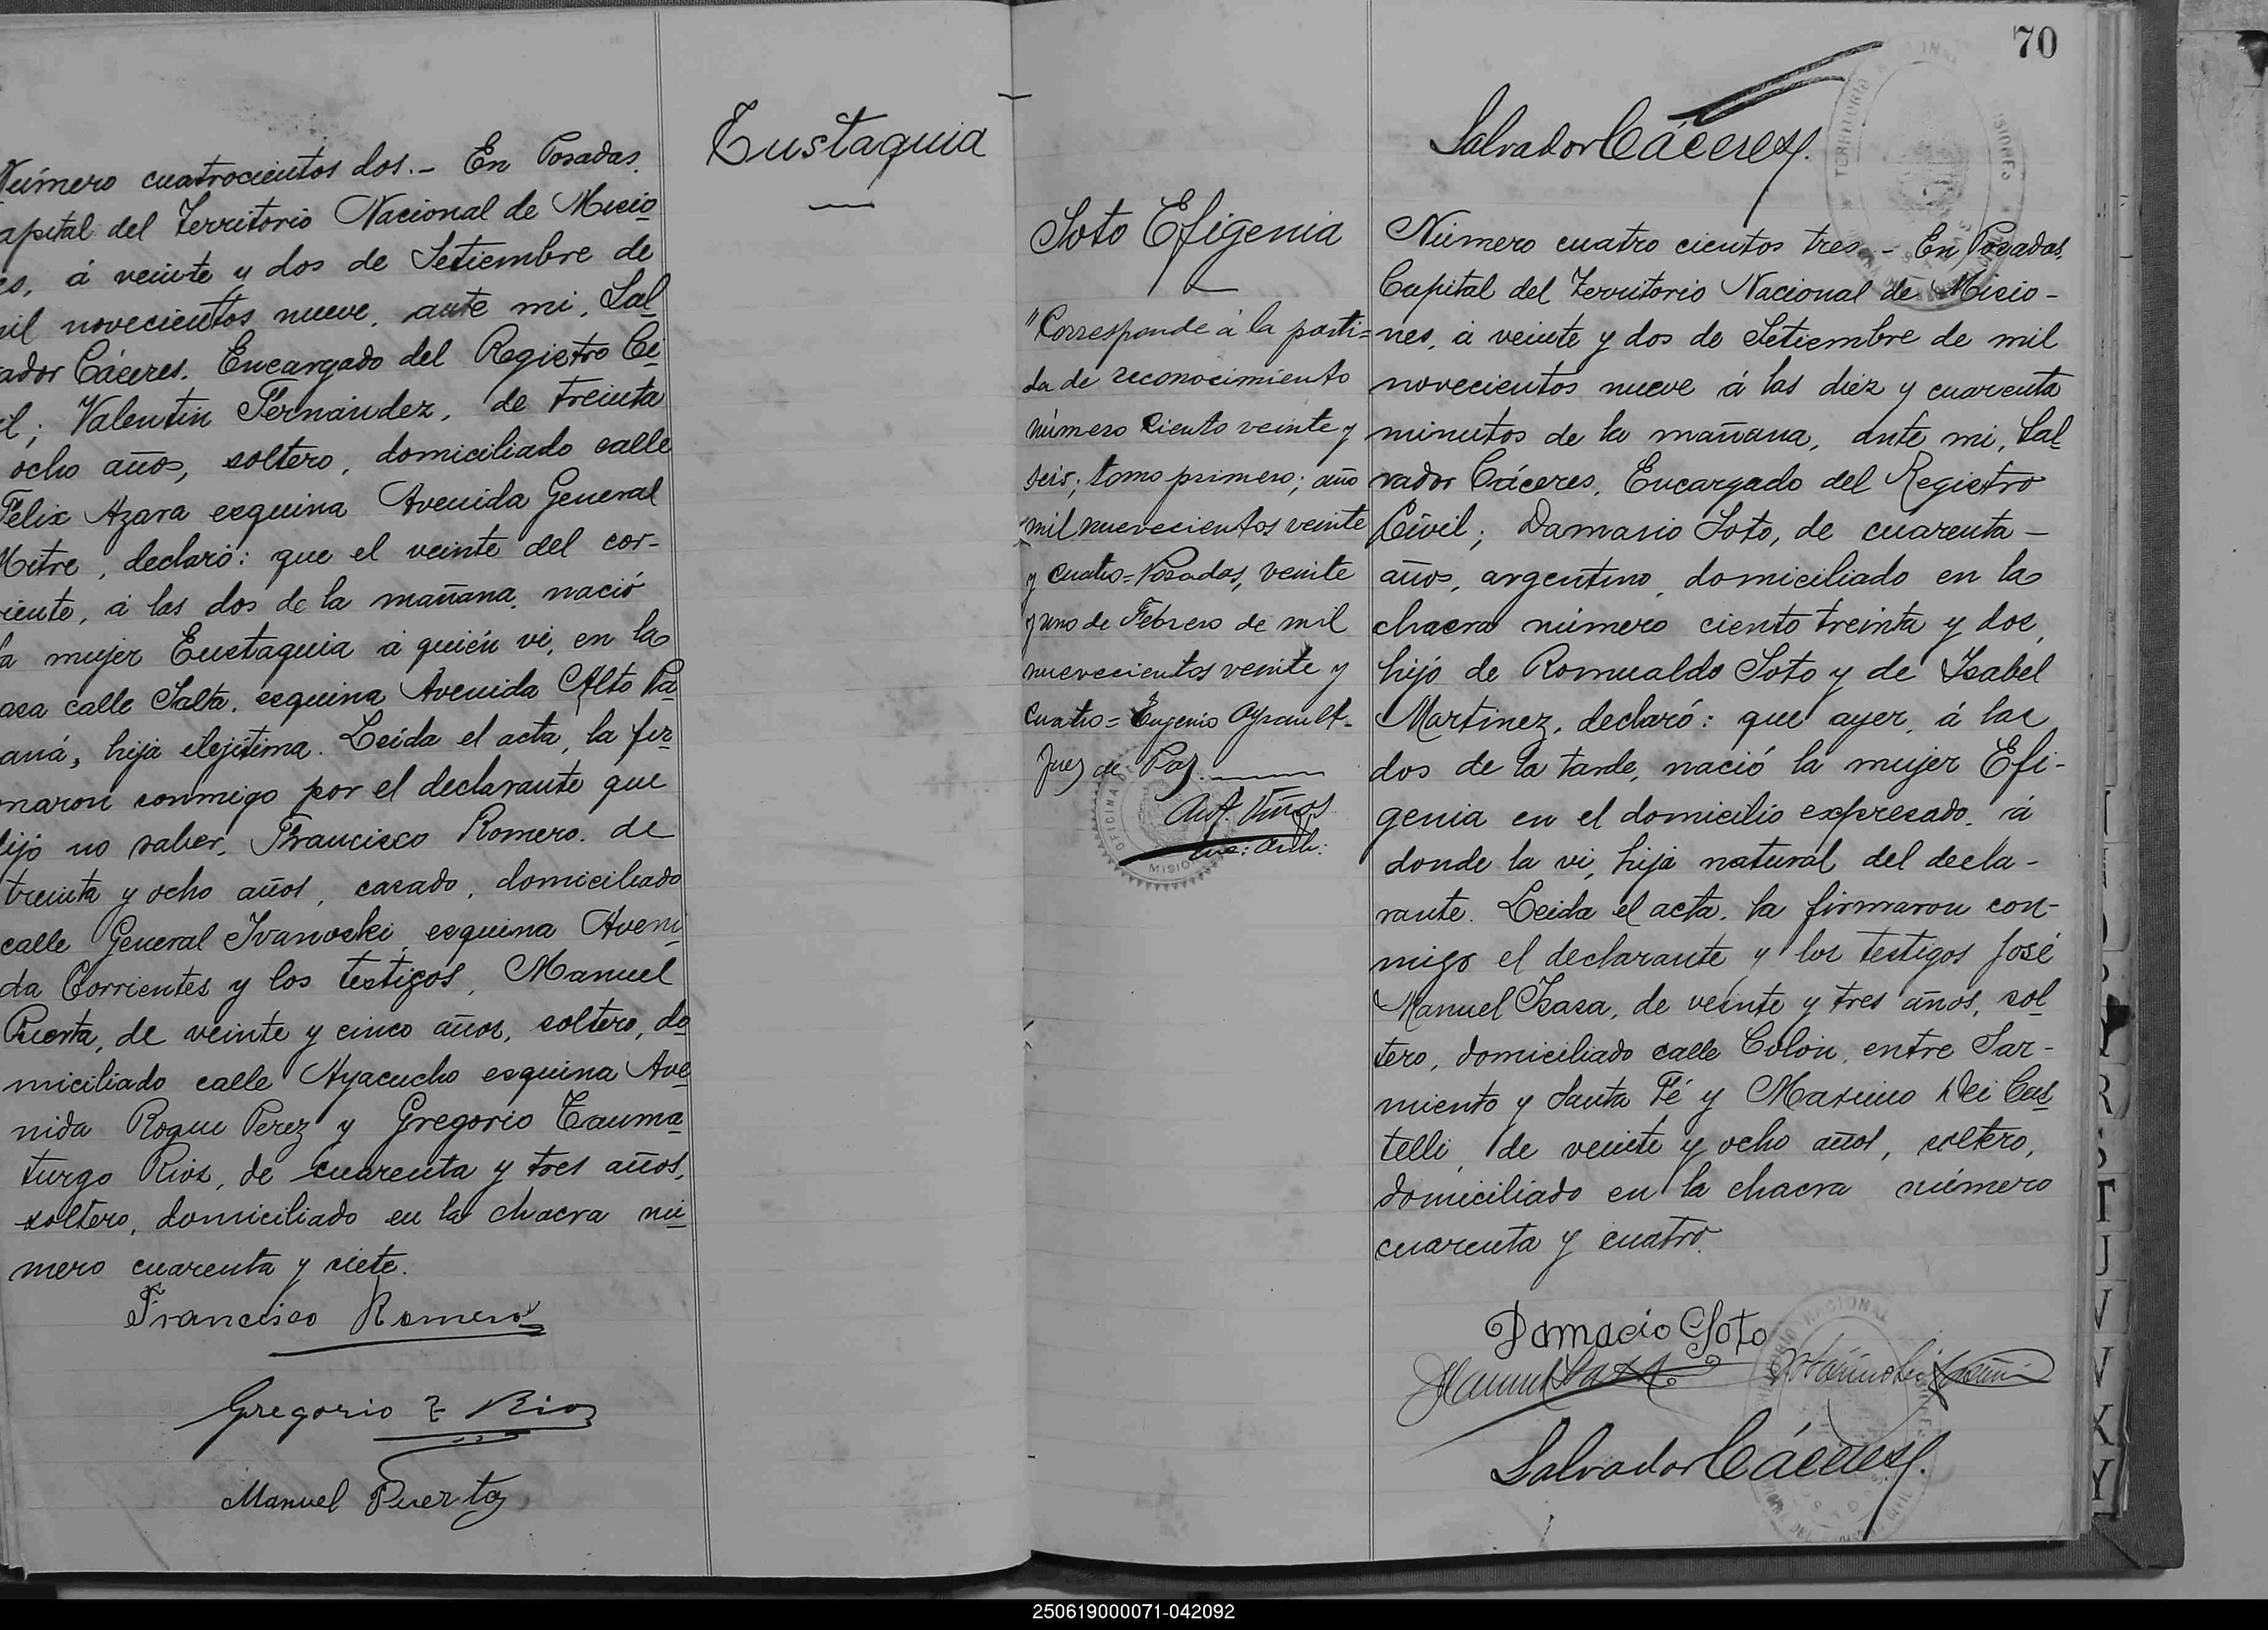 Número cuatrocientos dos.- En Posadas,
apital del Territorio Nacional de Misio
es, á veinte y dos de Setiembre de
mil novecientos nueve, ante mi, Sal
vador Cáceres. Encargado del Registro Ci
il; Valentin Fernández, de treinta
ocho años, soltero, domiciliado calle
Felix Azara esquina Avenida General
Mitre, declaró: que el veinte del cor-
riente, á las dos de la mañana, nació
la mujer Eustaquia á quién vi, en la
asa calle Salta, esquina Avenida Alto Pa
aná, hija ilejítima. Leída el acta, la fir
maron conmigo por el declarante que
dijo no saber, Francisco Romero, de
treinta y ocho años, casado, domiciliado
calle General Ivanoski, esquina Aveni
da Corrientes y los testigos, Manuel
Puerta, de veinte y cinco años, soltero, do
miciliado calle Ayacucho esquina Ave
nida Roque Perez y Gregorio Tauma
turgo Rios, de cuarenta y tres años,
soltero, domiciliado en la chacra nú
mero cuarenta y siete.
Francisco Romero
Gregorio T Rios
Manuel Puerta
Eustaquia
70
Salvador Cáceres
Soto Efigenia
"Corresponde á la parti=
da de reconocimiento
número ciento veinte y
seis; tomo primero; año
mil nuevecientos veinte
y cuatro= Posadas, veinte
y uno de Febrero de mil
nuevecientos veinte y
cuatro= Eugenio Ayrault-
Juez de Paz
OFICINA DE
MISIO
Número cuatro cientos tres.- En Posadas,
Capital del Territorio Nacional de Misio-
nes, á veinte y dos de Setiembre de mil
novecientos nueve á las diez y cuarenta
minutos de la mañana, ante mi, Sal
vador Cáceres, Encargado del Registro
Civil; Damasio Soto, de cuarenta-
años, argentino, domiciliado en la
chacra número ciento treinta y dos,
hijo de Romualdo Soto y de Isabel
Martinez, declaró: que ayer, á las
dos de la tarde, nació la mujer Efi-
genia en el domicilio expresado, á
donde la vi, hija natural del decla-
rante. Leida el acta, la firmaron con-
migo el declarante y los testigos José
Manuel Isasa, de veinte y tres años, sol
tero, domiciliado calle Colón, entre Sar-
miento y Santa Fé y Maximo Dei Cas
telli, de veinte y ocho años, soltero,
domiciliado en la chacra número
cuarenta y cuatro.
Damacio Soto
Salvador Cáceres
R
S
T
U
V
X
Y
250619000071-042092